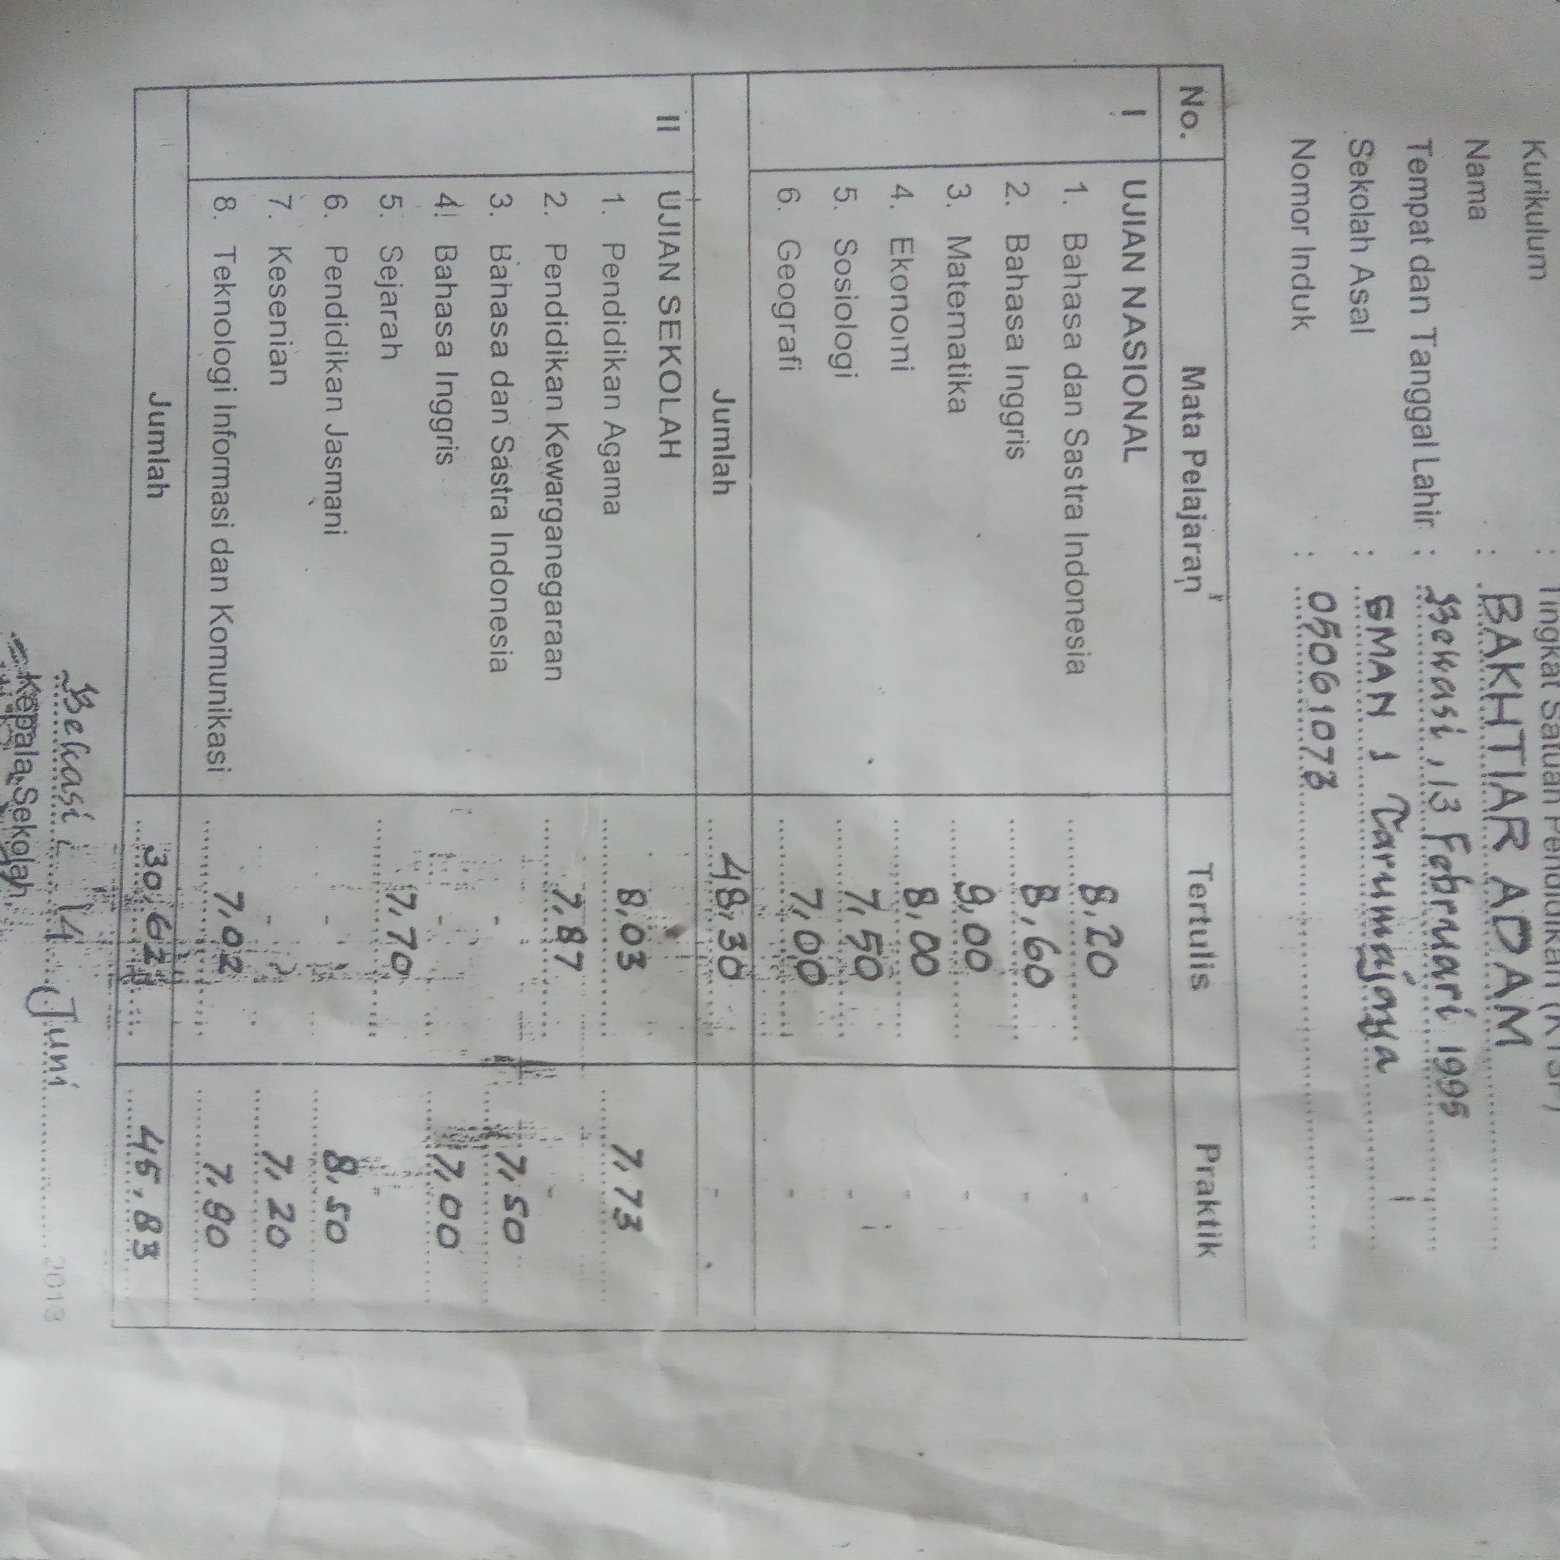 Kurikulum : Tingkat Satuan Pendidikan (KTSP)
Nama : BAKHTIAR ADAM
Tempat dan Tanggal Lahir : Bekasi, 13 Februari 1995
Sekolah Asal : SMAN 1 Tarumajaya
Nomor Induk : 05061073
No. Mata Pelajaran Tertulis Praktik
I UJIAN NASIONAL
1. Bahasa dan Sastra Indonesia 8,20 -
2. Bahasa Inggris 8,60 -
3. Matematika 9,00 -
4. Ekonomi 8,00 -
5. Sosiologi 7,50 -
6. Geografi 7,00 -
Jumlah 48,30 -
II UJIAN SEKOLAH
1. Pendidikan Agama 8,03 7,73
2. Pendidikan Kewarganegaraan 7,87 -
3. Bahasa dan Sastra Indonesia - 7,50
4. Bahasa Inggris - 7,00
5. Sejarah 7,70 -
6. Pendidikan Jasmani - 8,50
7. Kesenian - 7,20
8. Teknologi Informasi dan Komunikasi 7,02 7,90
Jumlah 30,62 45,83
Bekasi, 14 Juni 2013
Kepala Sekolah,